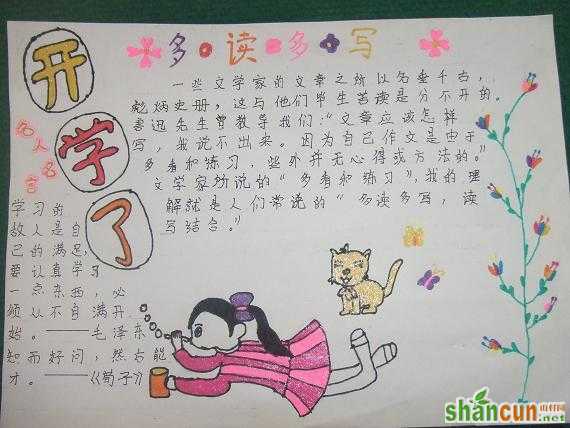 开
学
了
多读多写
一些文学家的文章之所以名垂千古,
彪炳史册,这与他们毕生善读是分不开的.
鲁迅先生曾教导我们:“文章应该怎样
写,我说不出来。因为自己作文是由于
多看和练习,此外并无心得或方法的。”
文学家所说的“多看和练习”,我的理
解就是人们常说的“多读多写,读
写结合。”
名人名言
学习的
敌人是自
己的满足,
要认真学习
一点东西,必
须从不自满开
始。——毛泽东
知而好问,然后能
才。——《荀子》
shancun
.net